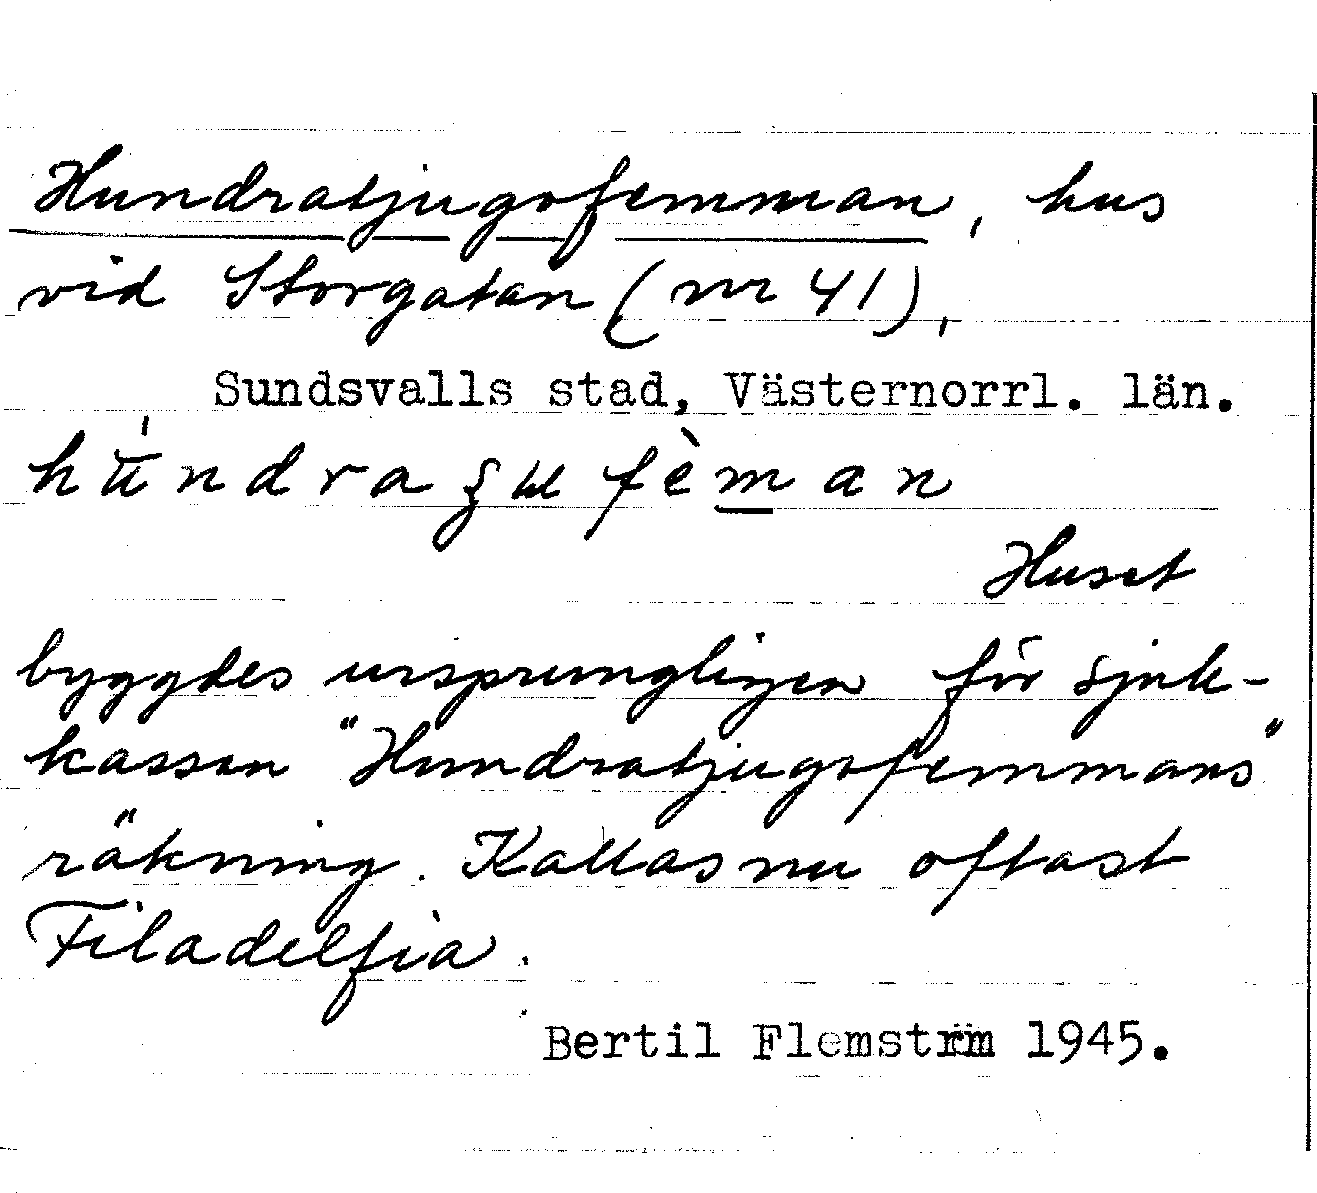 Hundratjugofemman, hus
vid Storgatan (nr 41),
Sundsvalls stad, Västernorrl. län.
Huset
byggdes ursprungligen för sjuk-
kassan "Hundratjugofemmans"
räkning. Kallas nu oftast
Filadelfia.
Bertil Flemström 1945.